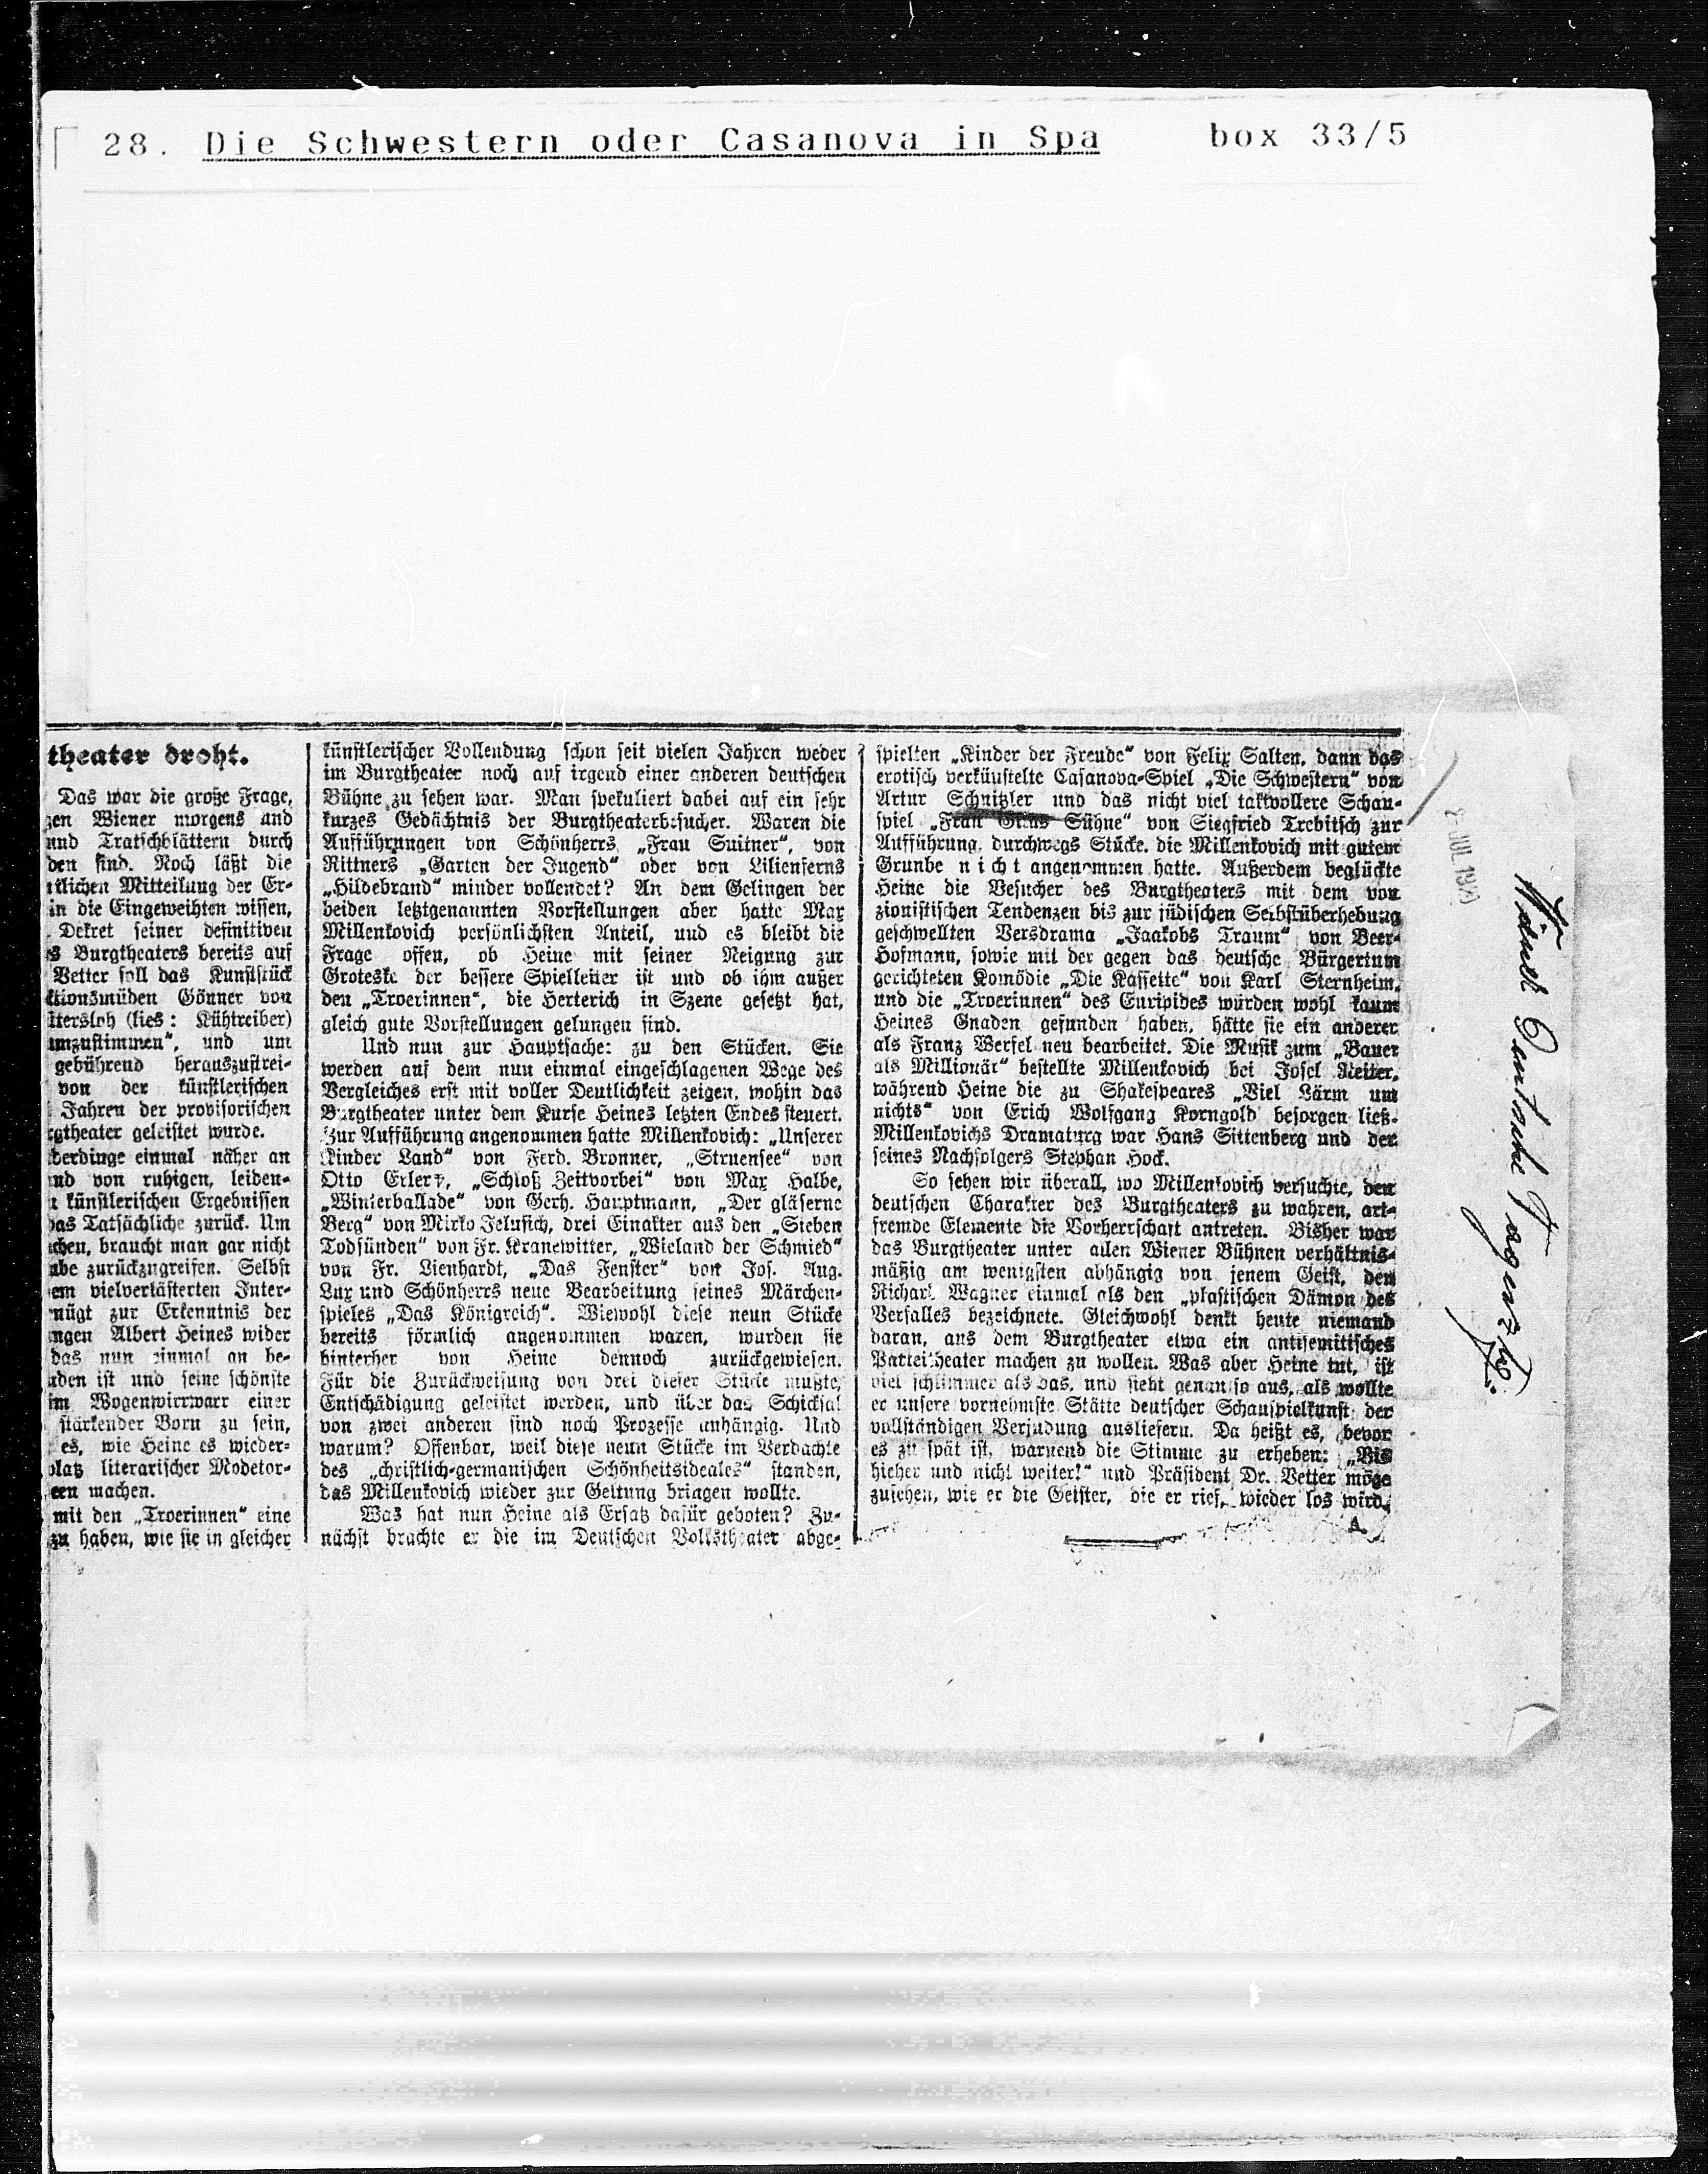 28. Die Schwestern oder Casanova in Spa box 33/5
theater droht.
Das war die große Frage,
gen Wiener morgens and
und Tratschblättern durch
den sind. Noch läßt die
tlichen Mitteilung der Er-
in die Eingeweihten wissen,
. Dekret seiner definitiven
s Burgtheaters bereits auf
Vetter soll das Kunststück
ktionsmüden Gönner von
tersloh (lies: Kühtreiber)
umzustimmen“, und um
gebührend herauszustrei-
von der künstlerischen
Jahren der provisorischen
rgtheater geleistet wurde.
lderdinge einmal näher an
und von ruhigen, leiden-
künstlerischen Ergebnissen
das Tatsächliche zurück. Um
chen, braucht man gar nicht
abe zurückzugreifen. Selbst
em vielverlästerten Inter-
nügt zur Erkenntnis der
ngen Albert Heines wider
das nun einmal an be-
nden ist und seine schönste
im Wogenwirrwarr einer
stärkender Born zu sein,
es, wie Heine es wieder-
platz literarischer Modetor-
een machen.
mit den „Troerinnen“ eine
zu haben, wie sie in gleicher
künstlerischer Vollendung schon seit vielen Jahren weder
im Burgtheater noch auf irgend einer anderen deutschen
Bühne zu sehen war. Man spekuliert dabei auf ein sehr
kurzes Gedächtnis der Burgtheaterbesucher. Waren die
Aufführungen von Schönherrs „Frau Suitner“, von
Rittners „Garten der Jugend“ oder von Lilienferns
„Hildebrand“ minder vollendet? An dem Gelingen der
beiden letztgenannten Vorstellungen aber hatte Max
Millenkovich persönlichsten Anteil, und es bleibt die
Frage offen, ob Heine mit seiner Neigung zur
Groteske der bessere Spielleiter ist und ob ihm außer
den „Troerinnen“, die Herterich in Szene gesetzt hat,
gleich gute Vorstellungen gelungen sind.
Und nun zur Hauptsache: zu den Stücken. Sie
werden auf dem nun einmal eingeschlagenen Wege des
Vergleiches erst mit voller Deutlichkeit zeigen, wohin das
Burgtheater unter dem Kurse Heines letzten Endes steuert.
Zur Aufführung angenommen hatte Millenkovich: „Unserer
Kinder Land“ von Ferd. Bronner, „Struensee“ von
Otto Erler, „Schloß Zeitvorbei“ von Max Halbe,
„Winterballade“ von Gerh. Hauptmann, „Der gläserne
Berg“ von Mirko Jelusich, drei Einakter aus den „Sieben
Todsünden“ von Fr. Kranewitter, „Wieland der Schmied“
von Fr. Lienhardt, „Das Fenster“ von Jos. Aug.
Lux und Schönherrs neue Bearbeitung seines Märchen-
spieles „Das Königreich“. Wiewohl diese neun Stücke
bereits förmlich angenommen waren, wurden sie
hinterher von Heine dennoch zurückgewiesen.
Für die Zurückweisung von drei dieser Stücke mußte
Entschädigung geleistet werden, und über das Schicksal
von zwei anderen sind noch Prozesse anhängig. Und
warum? Offenbar, weil diese neun Stücke im Verdachte
des „christlich-germanischen Schönheitsideales“ standen,
das Millenkovich wieder zur Geltung bringen wollte.
Was hat nun Heine als Ersatz dafür geboten? Zu-
nächst brachte er die im Deutschen Volkstheater abge-
spielten „Kinder der Freude“ von Felix Salten, dann das
erotisch verkünstelte Casanova-Spiel „Die Schwestern“ von
Artur Schnitzler und das nicht viel taktvollere Schau-
spiel „Frau Gittas Sühne“ von Siegfried Trebitsch zur
Aufführung, durchwegs Stücke, die Millenkovich mit gutem
Grunde nicht angenommen hatte. Außerdem beglückte
Heine die Besucher des Burgtheaters mit dem von
zionistischen Tendenzen bis zur jüdischen Selbstüberhebung
geschwellten Versdrama „Jaakobs Traum“ von Beer-
Hofmann, sowie mit der gegen das deutsche Bürgertum
gerichteten Komödie „Die Kassette“ von Karl Sternheim,
und die „Troerinnen“ des Euripides würden wohl kaum
Heines Gnaden gefunden haben, hätte sie ein anderer
als Franz Werfel neu bearbeitet. Die Musik zum „Bauer
als Millionär“ bestellte Millenkovich bei Josef Reiter,
während Heine die zu Shakespeares „Viel Lärm um
nichts“ von Erich Wolfgang Korngold besorgen ließ.
Millenkovichs Dramaturg war Hans Sittenberg und der
seines Nachfolgers Stephan Hock.
So sehen wir überall, wo Millenkovich versuchte, den
deutschen Charakter des Burgtheaters zu wahren, art-
fremde Elemente die Vorherrschaft antreten. Bisher war
das Burgtheater unter allen Wiener Bühnen verhältnis-
mäßig am wenigsten abhängig von jenem Geist, den
Richard Wagner einmal als den „plastischen Dämon des
Verfalles bezeichnete. Gleichwohl denkt heute niemand
daran, aus dem Burgtheater etwa ein antisemitisches
Parteitheater machen zu wollen. Was aber Heine tut, ist
viel schlimmer als das, und sieht genau so aus, als wollte
er unsere vornehmste Stätte deutscher Schauspielkunst der
vollständigen Verjudung ausliefern. Da heißt es, bevor
es zu spät ist, warnend die Stimme zu erheben: „Bis
hieher und nicht weiter!“ und Präsident Dr. Vetter möge
zusehen, wie er die Geister, die er rief, wieder los wird.
A.
JUL 19
Deutsche